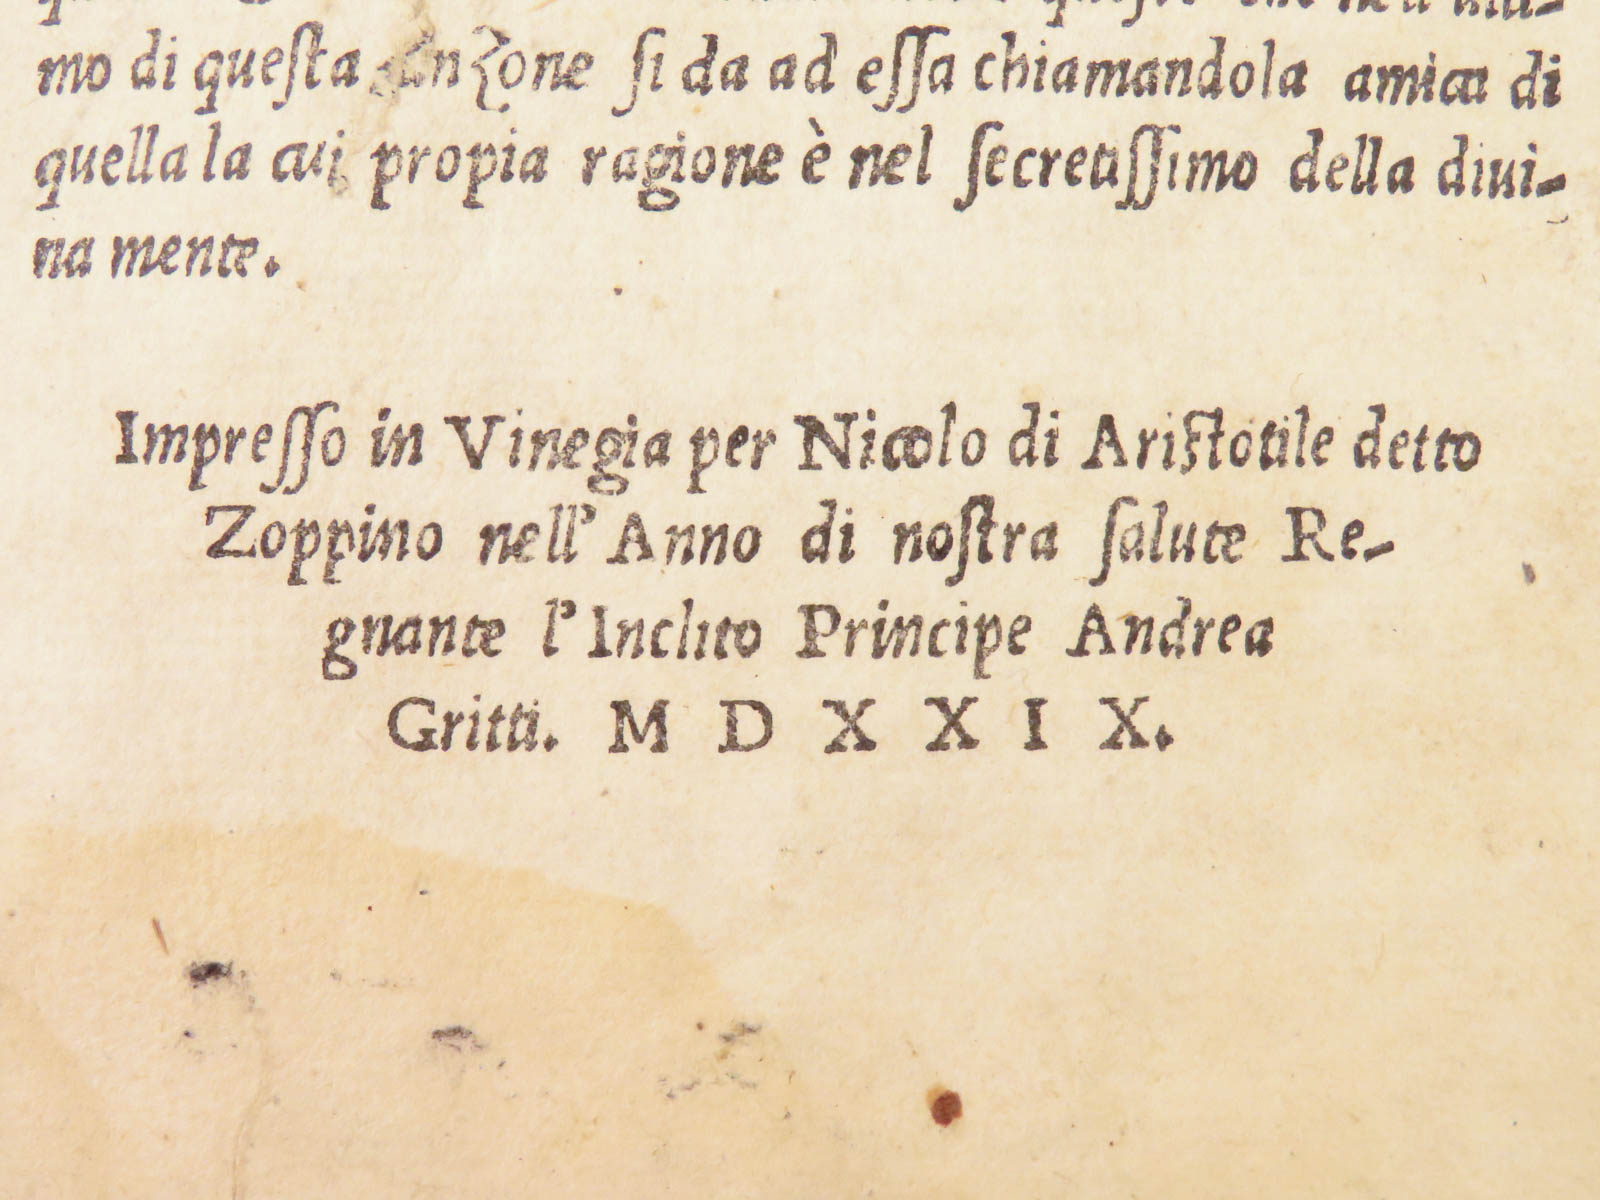 mo di questa canzone si da ad essa chiamandola amica di
quella la cui propia ragione è nel secretissimo della diui-
na mente.
Impresso in Vinegia per Nicolo di Aristotile detto
Zoppino nell'Anno di nostra salute Re-
gnante l'Inclito Principe Andrea
Gritti. M D X X I X.